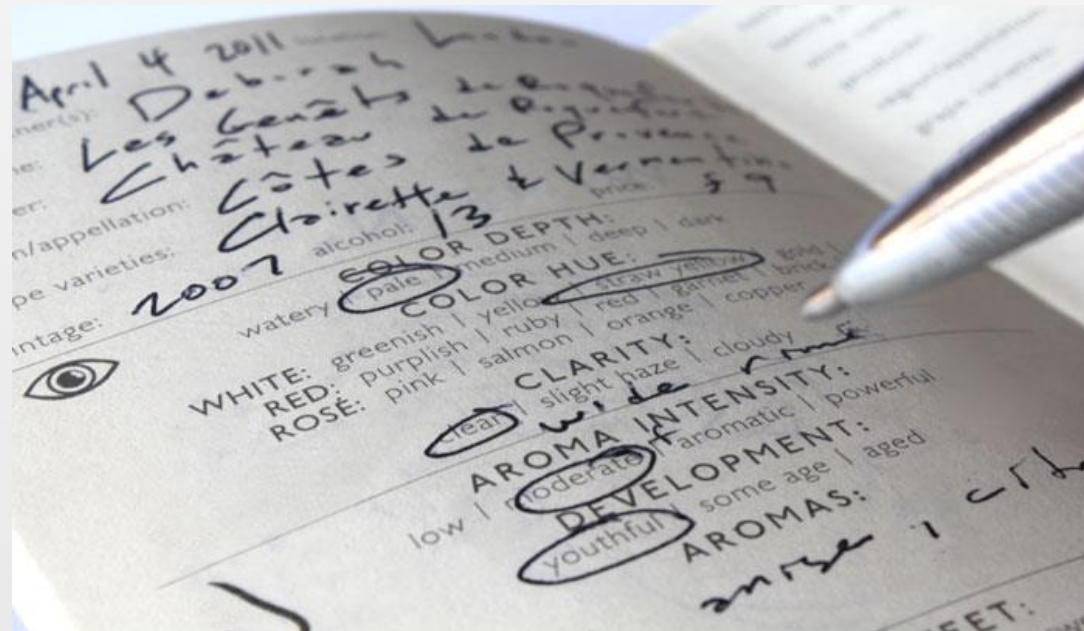 April 4 2011
ner(s): Deborah
ne: Les Genêts de
er: Château de
n/appellation: Côtes de Provence
pe varieties: Clairette & Vermentino
intage: 2007 alcohol: 13 price: $9
COLOR DEPTH:
watery | pale | medium | deep | dark
COLOR HUE:
WHITE: greenish | yellow | straw yellow | gold |
RED: purplish | ruby | red | garnet | brick
ROSÉ: pink | salmon | orange | copper
CLARITY:
clear | slight haze | cloudy
wide
AROMA INTENSITY:
low | moderate | aromatic | powerful
DEVELOPMENT:
youthful | some age | aged
AROMAS:
anise,
EET: